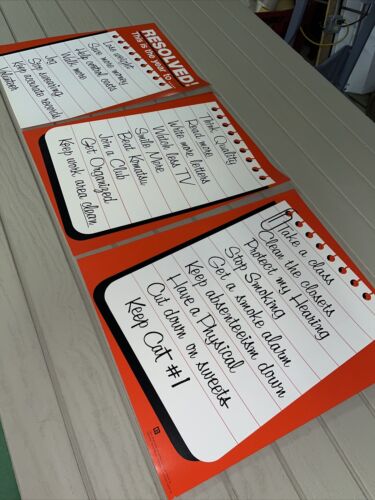 RESOLVED!
This is the year to...
Lose weight
Save more money
Help control costs
Walk more
Jog
Stop swearing
Keep accurate records
Think Quality
Read more
Write more letters
Watch less TV
Smile More
Beat Komatsu
Join a Club
Get Organized
Keep work area clean
Take a class
Clean the closets
Protect my Hearing
Stop Smoking
Get a smoke alarm
Keep absenseeism down
Have a Physical
Cut down on sweets
Keep Cat #1